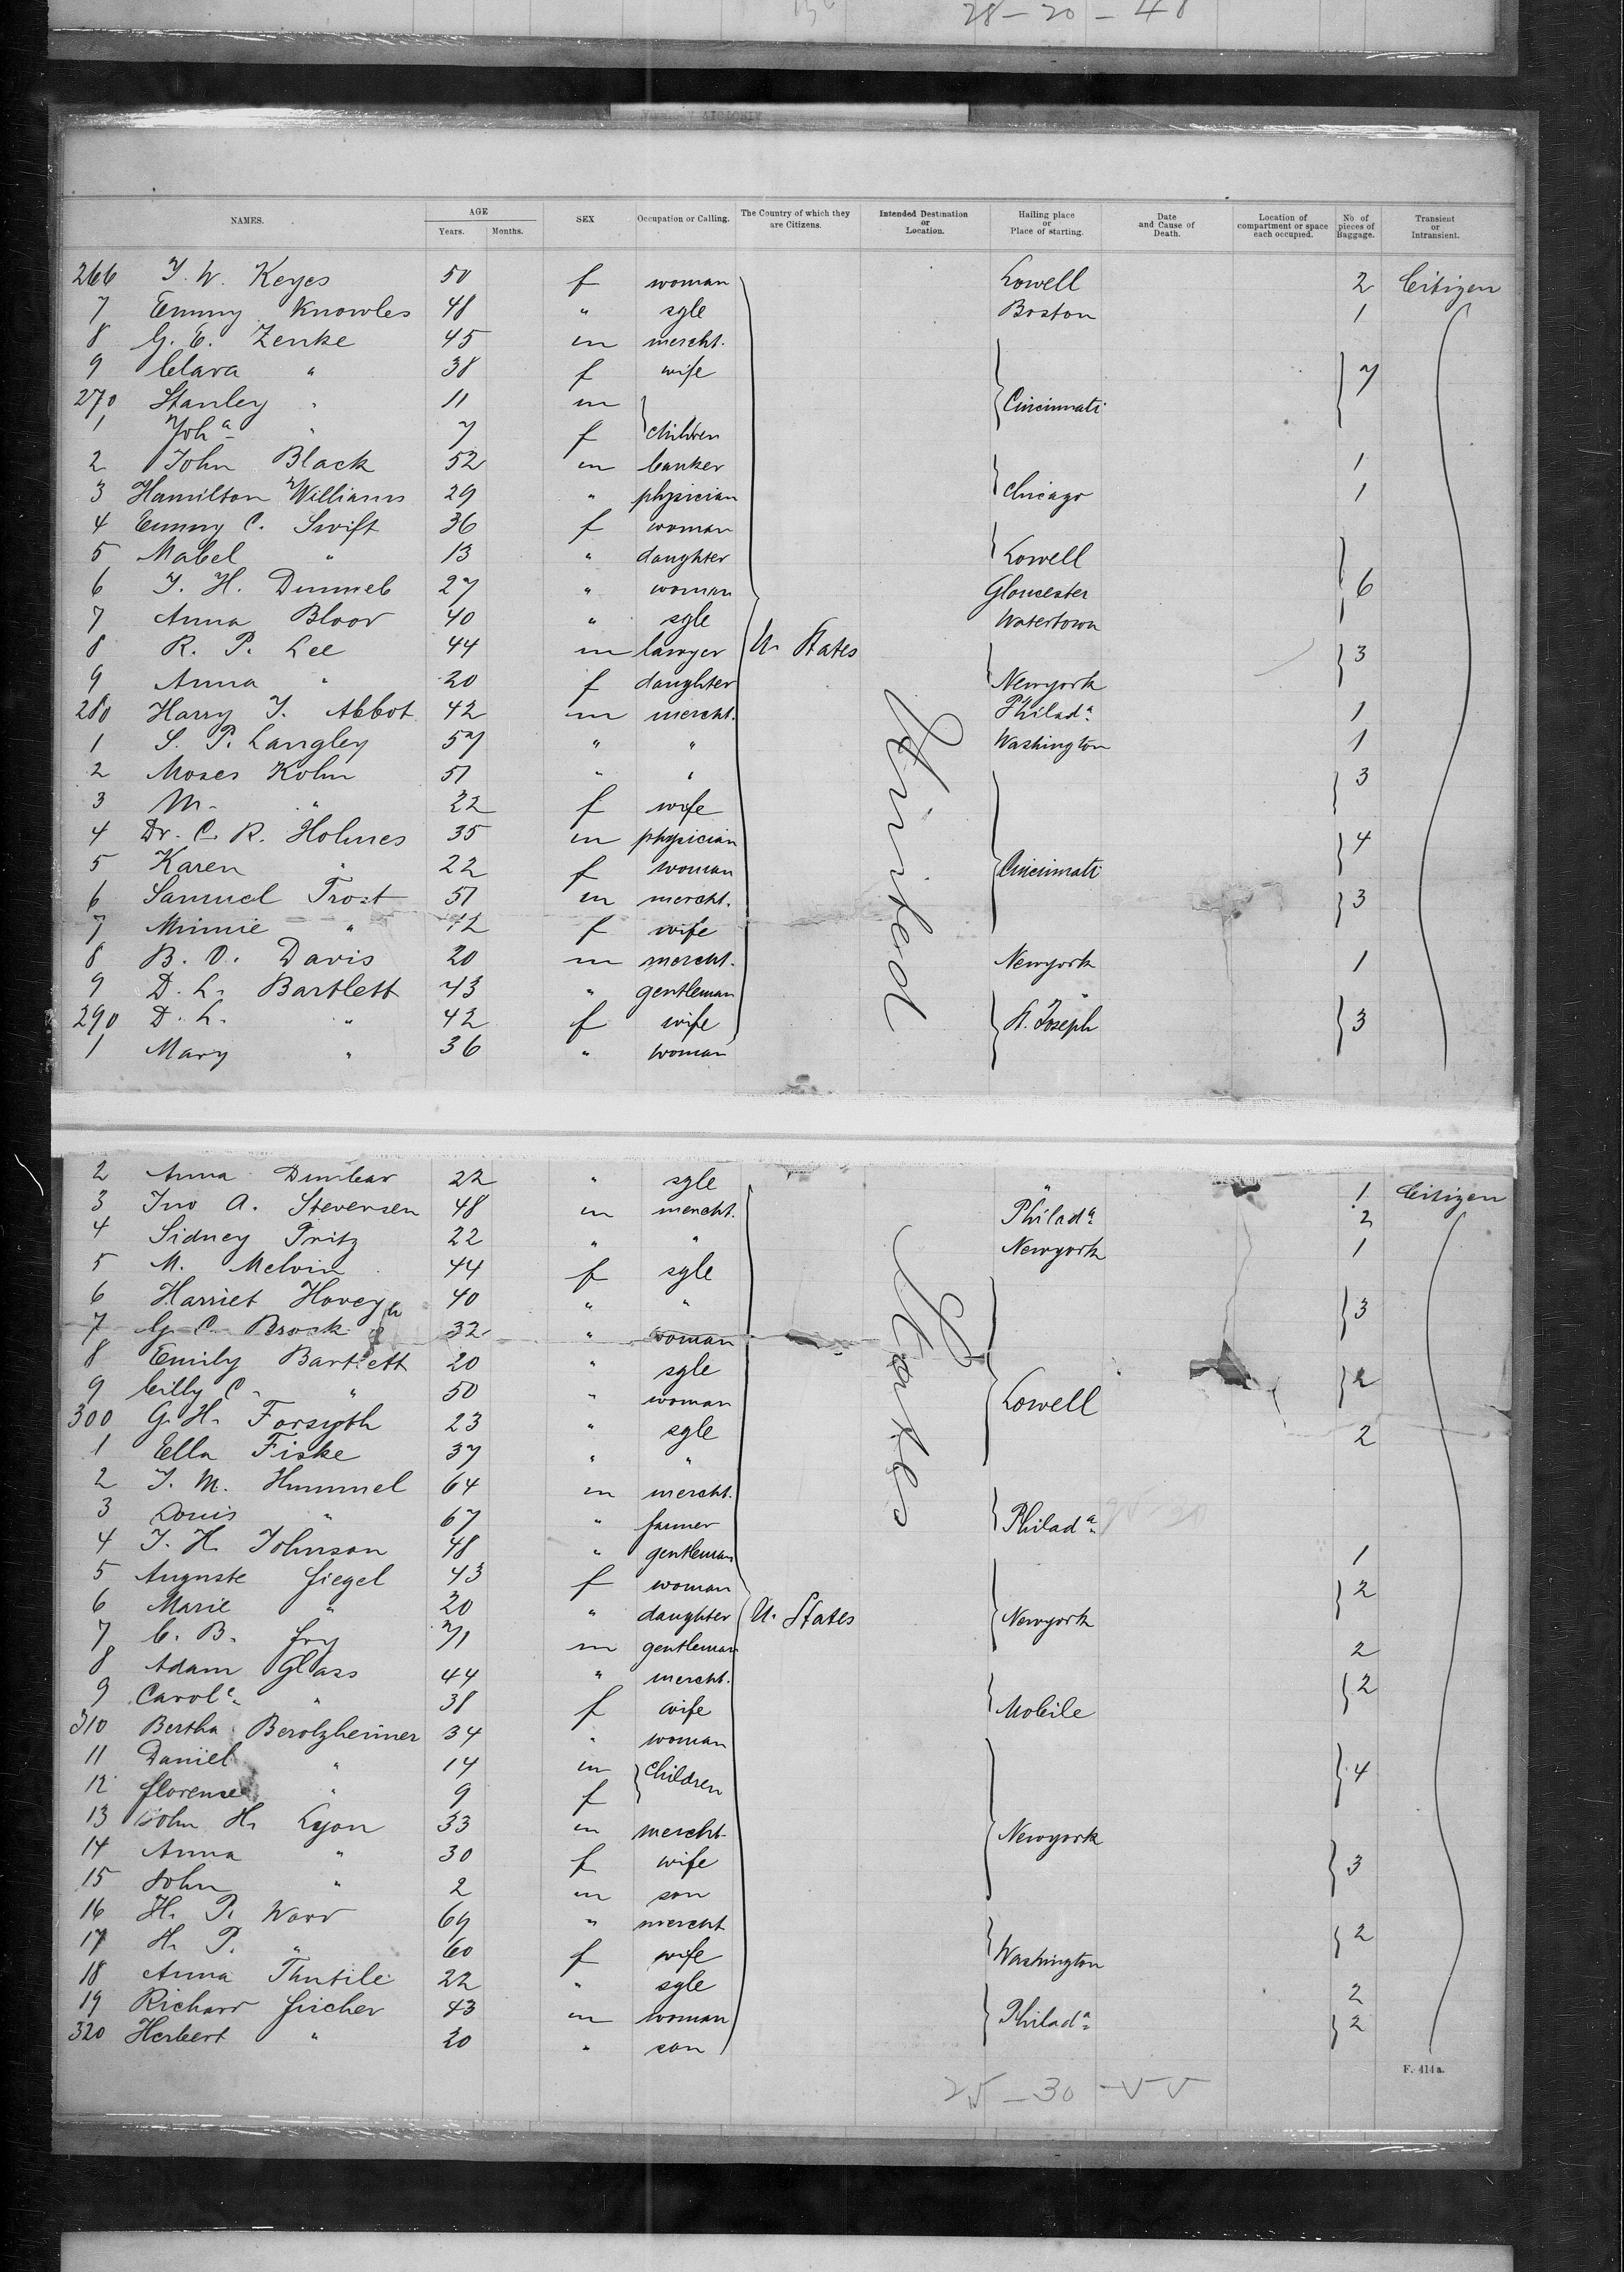 28-20-48
NAMES. AGE Years. Months. SEX Occupation or Calling. The Country of which they are Citizens. Intended Destination or Location. Hailing place or Place of starting. Date and Cause of Death. Location of compartment or space each occupied. No of pieces of Baggage. Transient or Intransient.
266 T. W. Keyes 50 f woman Lowell 2 Citizen
7 Emmy Knowles 48 " sgle Boston 1
8 G. E. Zenke 45 m mercht.
9 Clara " 38 f wife 7
270 Stanley " 11 m Cincinnati
1 Joh a " 7 f children
2 John Black 52 m banker 1
3 Hamilton Williams 29 " physician Chicago 1
4 Emmy C. Swift 36 f woman
5 Mabel " 13 " daughter Lowell
6 T. H. 27 " woman Gloucester 6
7 Anna Bloor 40 " sgle Watertown
8 R. P. Lee 44 m lawyer U. States 3
9 Anna " 20 f daughter Newyork
280 Harry T. Abbot 42 m mercht. Philad a. 1
1 S. P. Langley 57 " " Washington 1
2 Moses Kohn 51 " " 3
3 M. " 22 f wife
4 Dr. C. R. Holmes 35 m physician 4
5 Karen " 22 f woman Cincinnati
6 Samuel Trost 51 m mercht. 3
7 Minnie " 42 f wife
8 B. O. Davis 20 m mercht. Newyork 1
9 D. L. Bartlett 43 " gentleman
290 D. L. " 42 f wife St. Joseph 3
1 Mary " 36 " woman
United
2 Anna Dunbar 22 " sgle " 1 Citizen
3 Jno A. Steversen 48 m mercht. Philad a. 2
4 Sidney Fritz 22 " " Newyork 1
5 M. Melvin 44 f sgle
6 Harriet Hovey 40 " " 3
7 G. C. Brock 32 " woman
8 Emily Bartlett 20 " sgle
9 Cilly C. " 50 " woman Lowell 2
300 G. H. Forsyth 23 " sgle
1 Ella Fiske 37 " " 2
2 T. M. Hummel 64 m mercht.
3 Louis " 67 " farmer Philad a.
4 T. H. Johnson 48 " gentleman 1
5 Auguste Siegel 43 f woman 2
6 Marie " 20 " daughter U. States Newyork
7 C. B. Fry 71 m gentleman 2
8 Adam Glass 44 " mercht. 2
9 Carol e. " 38 f wife Mobile
310 Bertha Berolzheimer 34 " woman
11 Daniel " 14 m children 4
12 Florense " 9 f
13 John H. Lyon 33 m mercht. Newyork
14 Anna " 30 f wife 3
15 John " 2 m son
16 H. P. Warr 69 " mercht
17 H. P. " 60 f wife Washington 2
18 Anna Thutile 22 " sgle 2
19 Richard 43 m woman Philad a. 2
320 Herbert " 20 " son
States
F. 414a.
25-30-VV